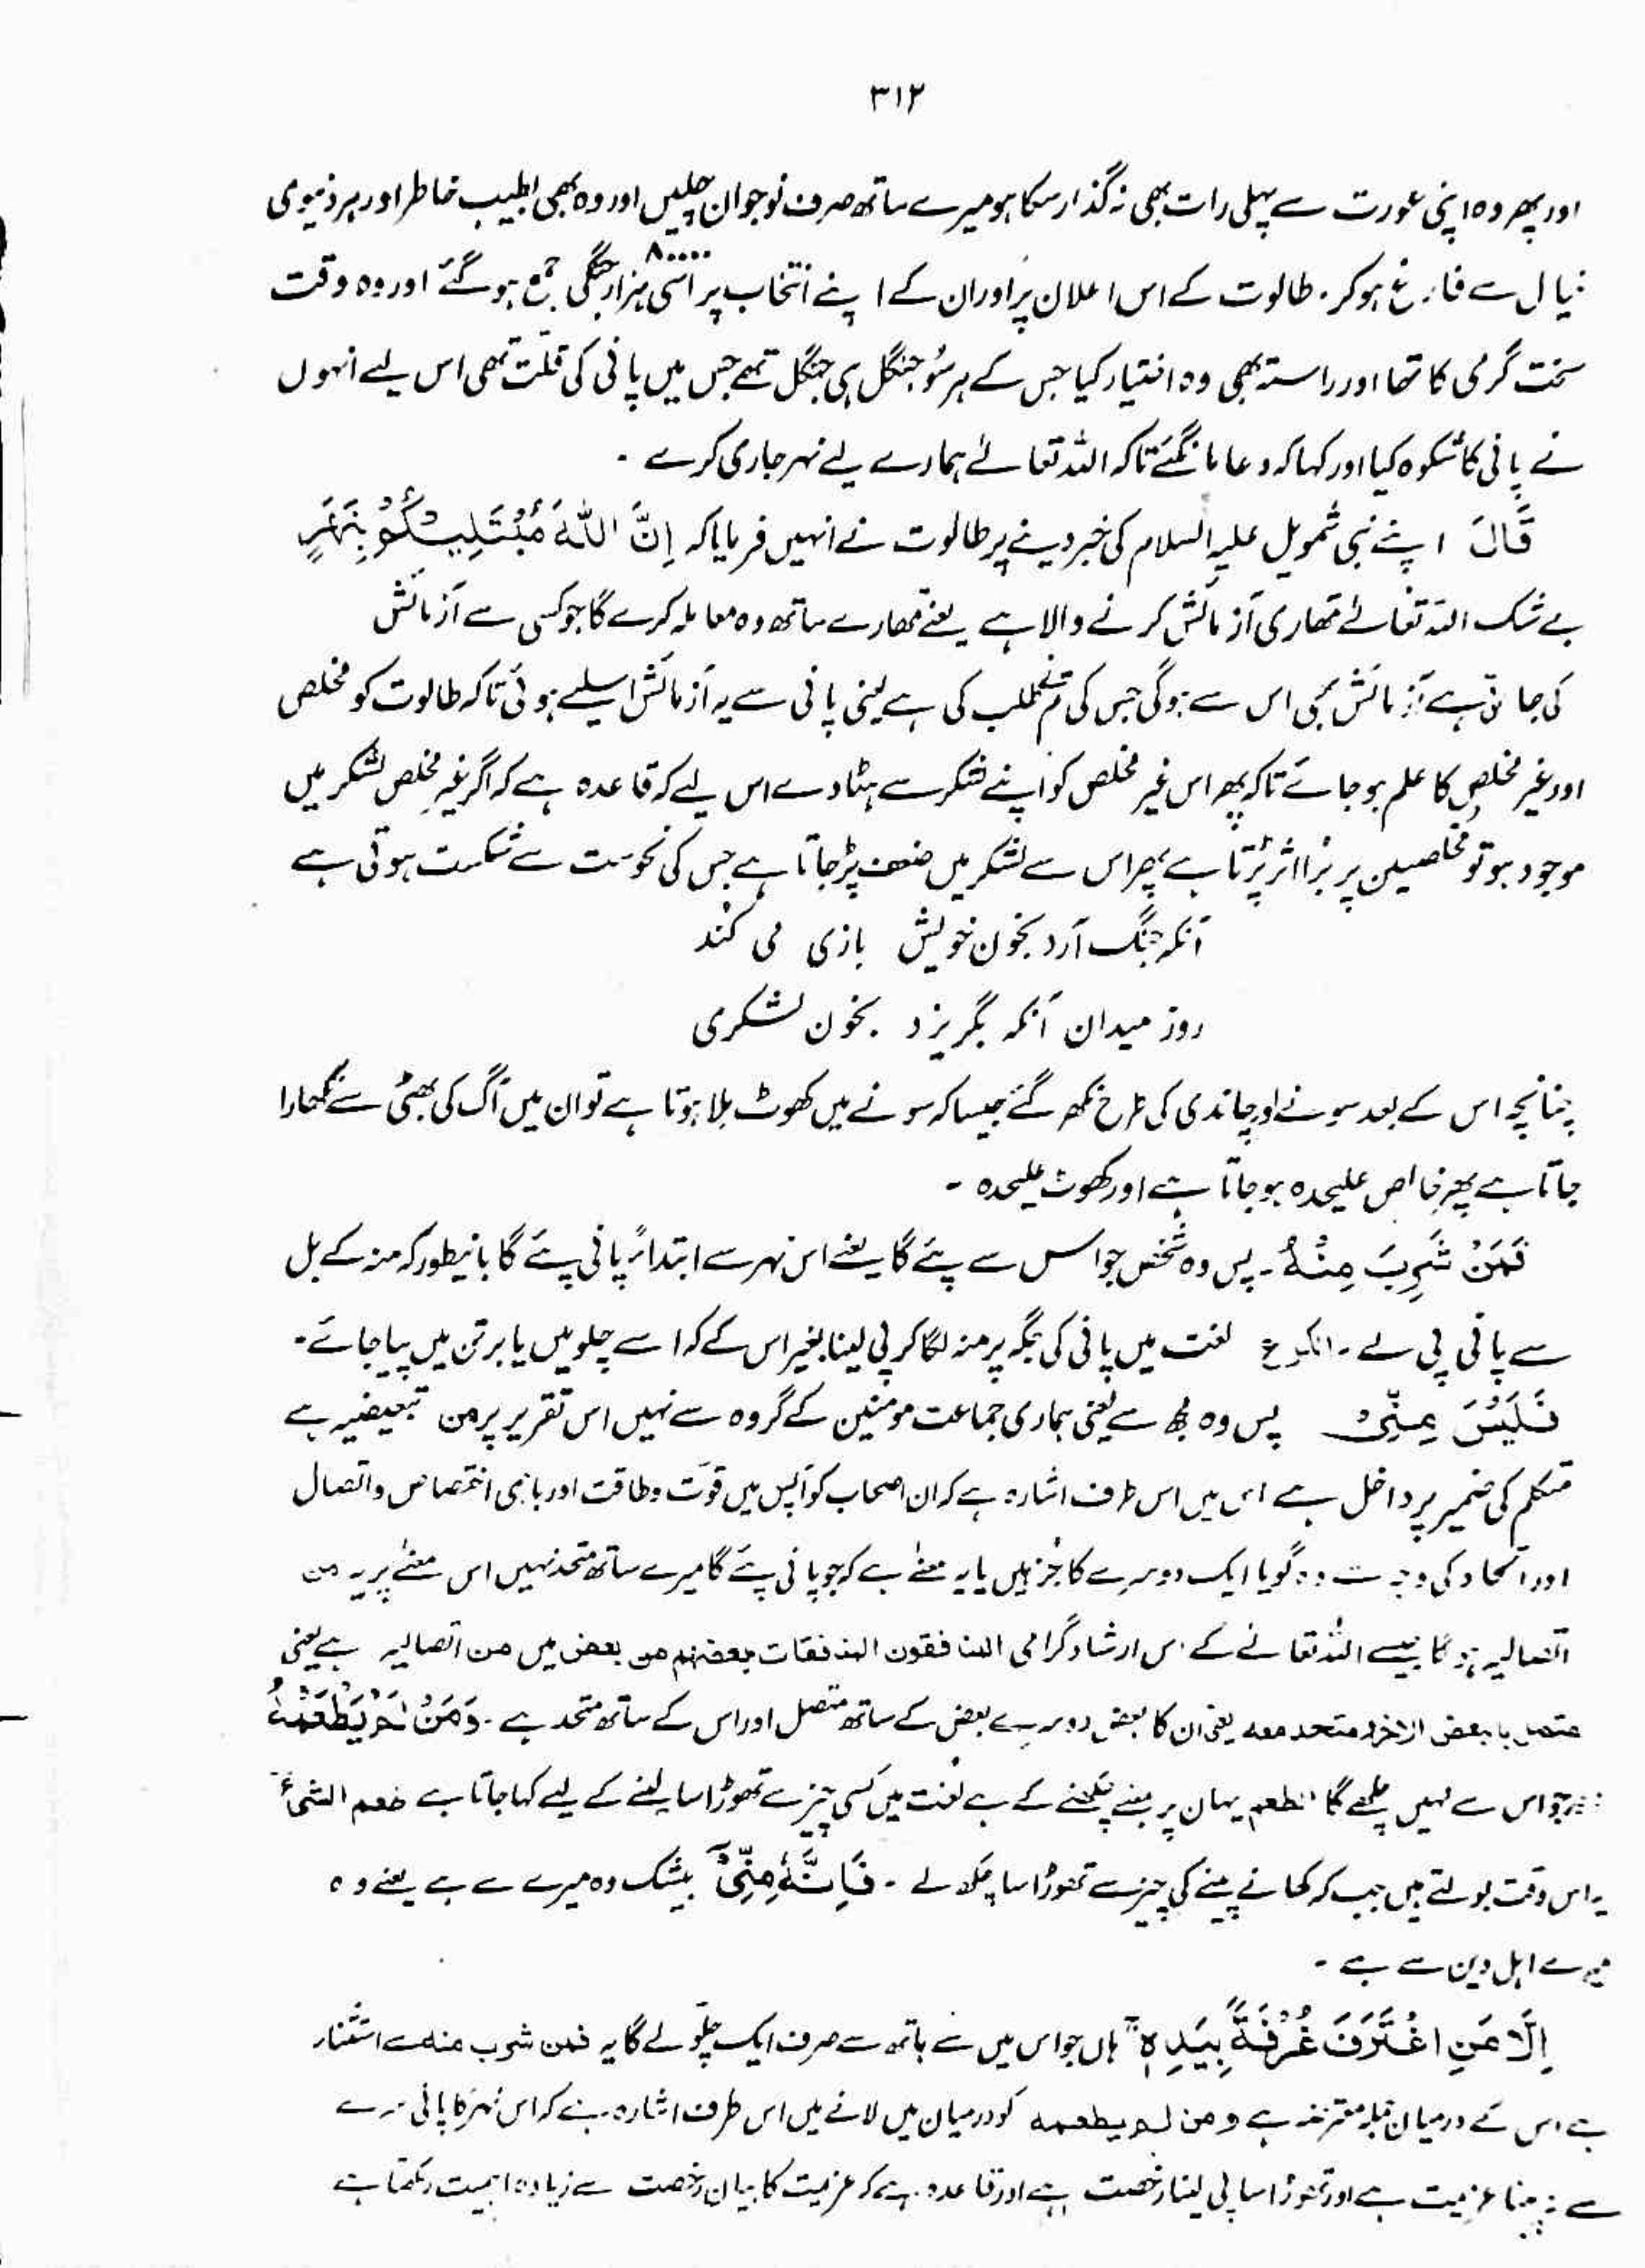 ٣١٢
اور پھر وہ اپنی عورت سے پہلی رات بھی نہ گذار سکا ہو میرے ساتھ صرف نوجوان چلیں اور وہ بھی بطیب خاطر اور ہر دنیوی
خیال سے فارغ ہو کر۔ طالوت کے اس اعلان پر اور ان کے اپنے انتخاب پر اسی ہزار ٨٠٠٠٠ جنگی جمع ہو گئے اور وہ وقت
سخت گرمی کا تھا اور راستہ بھی وہ اختیار کیا جس کے ہر سُو جنگل ہی جنگل تھے جس میں پانی کی قلّت تھی اس لیے انہوں
نے پانی کا شکوہ کیا اور کہا کہ دعا مانگئے تاکہ اللہ تعالےٰ ہمارے لیے نہر جاری کرے ۔
قَالَ اپنے نبی شمویل علیہ السلام کی خبر دینے پر طالوت نے انہیں فرمایا کہ اِنَّ اللّٰهَ مُبْتَلِيْكُمْ بِنَهَرٍ
بے شک اللہ تعالےٰ تمھاری آزمائش کرنے والا ہے یعنے تمھارے ساتھ وہ معاملہ کرے گا جو کسی سے آزمائش
کی جاتی ہے آزمائش بھی اس سے ہوگی جس کی تم نے طلب کی ہے یعنی پانی سے یہ آزمائش اسلیے ہوئی تاکہ طالوت کو مخلص
اور غیر مخلص کا علم ہو جائے تاکہ پھر اس غیر مخلص کو اپنے لشکر سے ہٹا دے اس لیے کہ قاعدہ ہے کہ اگر غیر مخلص لشکر میں
موجود ہو تو مخلصین پر بُرا اثر پڑتا ہے پھر اس سے لشکر میں ضعف پڑ جاتا ہے جس کی نحوست سے شکست ہوتی ہے
آنکہ جنگ آرد بخون خویش بازی می کند
روز میدان آنکہ بگریزد بخون لشکری
چنانچہ اس کے بعد سونے اور چاندی کی طرح نکھر گئے جیسا کہ سونے میں کھوٹ ملا ہوتا ہے تو ان میں آگ کی بھٹی سے نکھارا
جاتا ہے پھر خالص علیحدہ ہو جاتا ہے اور کھوٹ علیحدہ ۔
فَمَنْ شَرِبَ مِنْهُ ۔ پس وہ شخص جو اس سے پئے گا یعنے اس نہر سے ابتداءً پانی پئے گا بانیطور کہ منہ کے بل
سے پانی پی لے ۔ الکرع لغت میں پانی کی جگہ پر منہ لگا کر پی لینا بغیر اس کے کہ اسے چلو میں یا برتن میں پیا جائے ۔
فَلَيْسَ مِنِّيْ پس وہ مجھ سے یعنی ہماری جماعت مومنین کے گروہ سے نہیں اس تقریر پر من تبعیضیہ ہے
متکلم کی ضمیر پر داخل ہے اس میں اس طرف اشارہ ہے کہ ان اصحاب کو آپس میں قوّت وطاقت اور باہمی اختصاص واتصال
اور اتحاد کی وجہ سے وہ گویا ایک دوسرے کا جُز ہیں یا یہ معنےٰ ہے کہ جو پانی پئے گا میرے ساتھ متحد نہیں اس معنےٰ پر یہ من
اتصالیہ ہو گا جیسے اللہ تعالےٰ کے اس ارشاد گرامی المنافقون المنفقات بعضہم من بعض میں من اتصالیہ ہے یعنی
متصل بالبعض الاخر متحد معہ یعنی ان کا بعض دوسرے بعض کے ساتھ متصل اور اس کے ساتھ متحد ہے ۔ وَمَنْ لَّمْ يَطْعَمْهُ
جو اس سے نہیں چکھے گا الطعم یہاں پر بمعنے چکھنے کے ہے لغت میں کسی چیز سے تھوڑا سا لینے کے لیے کہا جاتا ہے طعم الشئ
یہ اس وقت بولتے ہیں جب کہ کھانے پینے کی چیز سے تھوڑا سا چکھ لے ۔ فَاِنَّهٗ مِنِّيْٓ بیشک وہ میرے سے ہے یعنے وہ
میرے اہل دین سے ہے ۔
اِلَّا مَنِ اغْتَرَفَ غُرْفَةًۢ بِيَدِهٖ ہاں جو اس میں سے ہاتھ سے صرف ایک چلّو لے گا یہ فمن شرب منہ سے استثناء
ہے اس کے درمیان جملہ معترضہ ہے ومن لم یطعمہ کو درمیان میں لانے میں اس طرف اشارہ ہے کہ اس نہر کا پانی سرے
سے نہ پینا عزیمت ہے اور تھوڑا سا پی لینا رخصت ہے اور قاعدہ ہے کہ عزیمت کا بیان رخصت سے زیادہ اہمیت رکھتا ہے